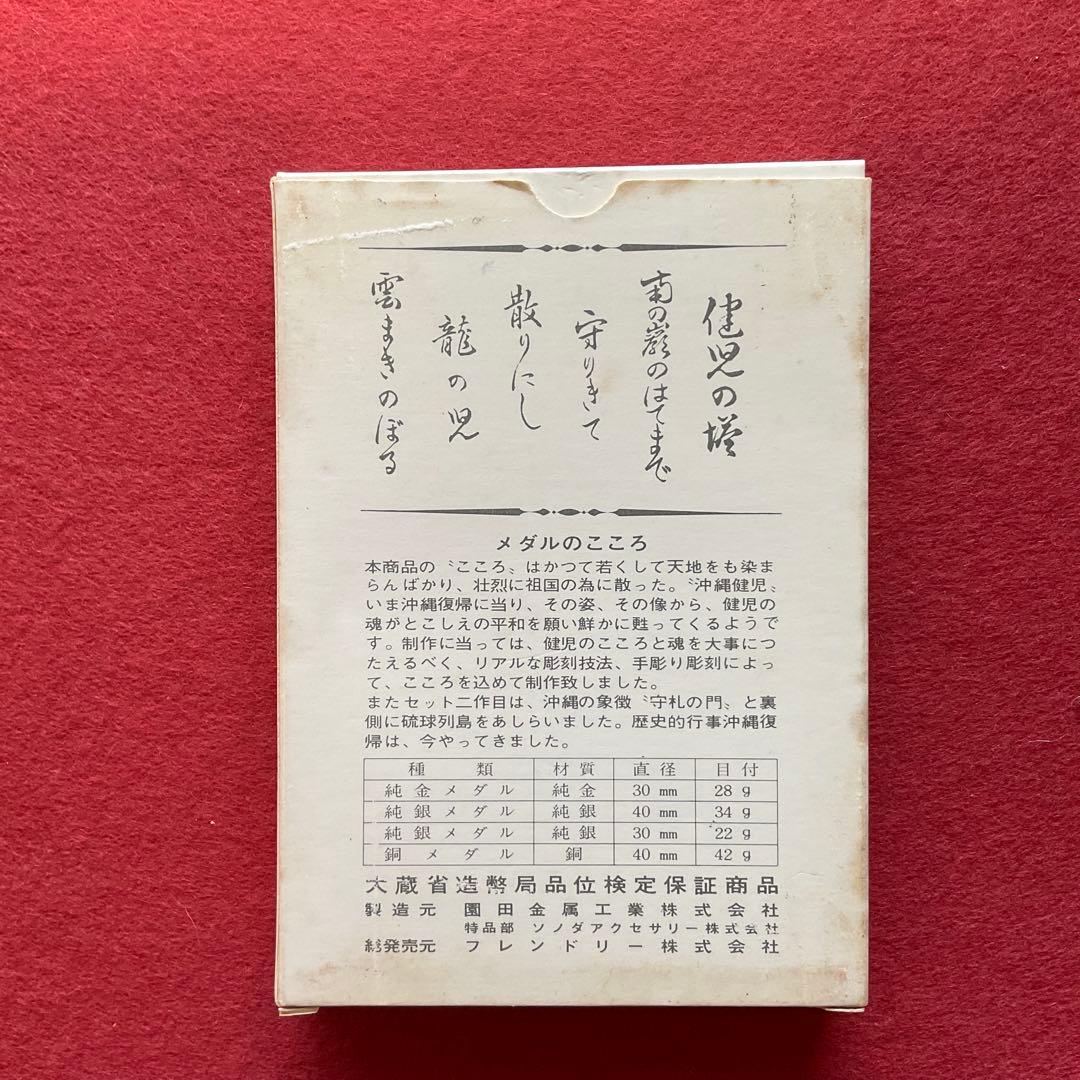 健児の塔
南の巌のはてまで
守りきて
散りにし
龍の児
雲まきのぼる
メダルのこころ
本商品の〝こころ〟はかつて若くして天地をも染ま
らんばかり、壮烈に祖国の為に散った。〝沖縄健児〟
いま沖縄復帰に当り、その姿、その像から、健児の
魂がとこしえの平和を願い鮮かに甦ってくるようで
す。制作に当っては、健児のこころと魂を大事につ
たえるべく、リアルな彫刻技法、手彫り彫刻によっ
て、こころを込めて制作致しました。
またセット二作目は、沖縄の象徴〝守札の門〟と裏
側に硫球列島をあしらいました。歴史的行事沖縄復
帰は、今やってきました。
種類 材質 直径 目付
純金メダル 純金 30 mm 28 g
純銀メダル 純銀 40 mm 34 g
純銀メダル 純銀 30 mm 22 g
銅メダル 銅 40 mm 42 g
大蔵省造幣局品位検定保証商品
製造元 園田金属工業株式会社
特品部 ソノダアクセサリー株式会社
総発売元 フレンドリー株式会社